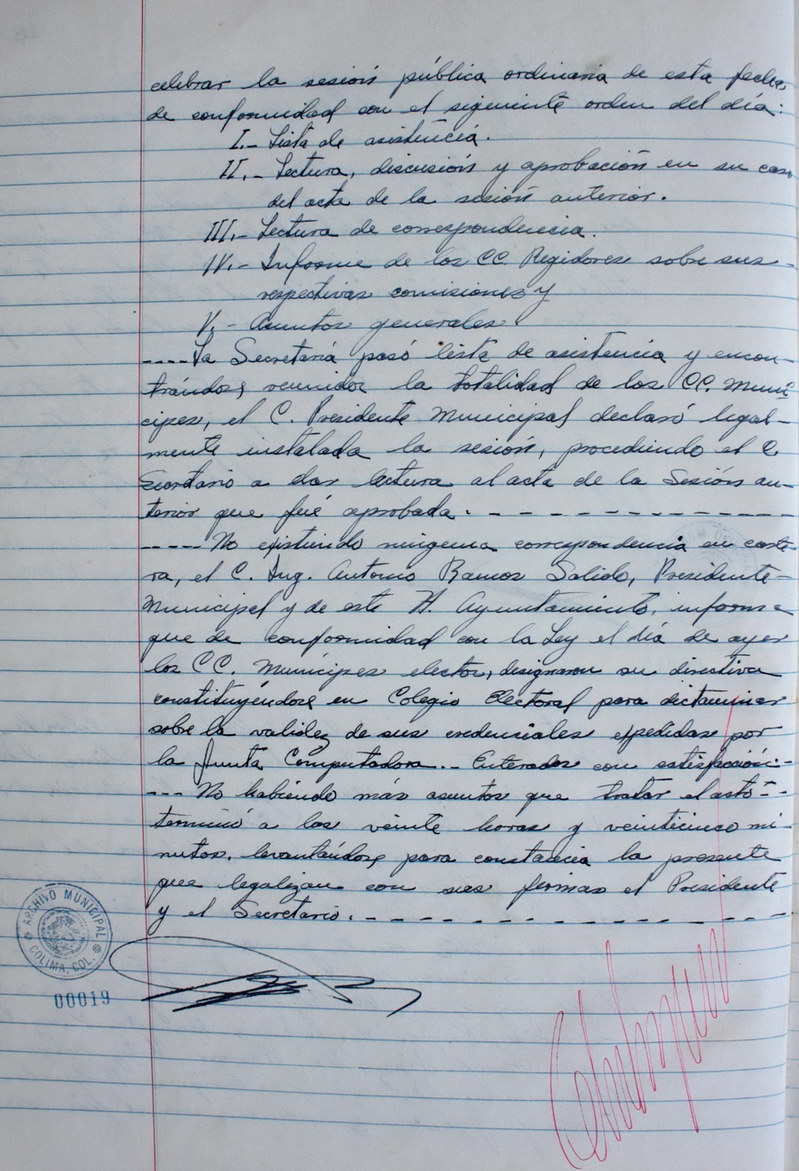 celebrar la sesión pública ordinaria de esta fecha
de conformidad con el siguiente orden del día:
I.- Lista de asistencia.
II.- Lectura, discusión y aprobación en su caso
del acta de la sesión anterior.
III.- Lectura de correspondencia.
IV.- Informe de los CC. Regidores sobre sus-
respectivas comisiones y
V.- Asuntos generales.
----La Secretaría pasó lista de asistencia y encon-
trándose reunidos la totalidad de los CC. Muní-
cipes, el C. Presidente Municipal declaró legal-
mente instalada la sesión, procediendo el C.
Secretario a dar lectura al acta de la Sesión an-
terior que fué aprobada.- - - - - - - - - - - - -
----No existiendo ninguna correspondencia en carte-
ra, el C. Ing. Antonio Ramos Salido, Presidente-
Municipal y de este H. Ayuntamiento, informa
que de conformidad con la Ley el día de ayer
los CC. Munícipes electos, designaron su directiva
constituyéndose en Colegio Electoral para dictaminar
sobre la validez de sus credenciales expedidas por
la Junta Computadora.- Enterados con satisfacción.-
---No habiendo más asuntos que tratar el acto--
terminó a las veinte horas y veinticinco mi-
nutos, levantándose para constancia la presente
que legalizan con sus firmas el Presidente
y el Secretario.- - - - - - - - - - - - - - -
ARCHIVO MUNICIPAL
COLIMA, COL.
00019